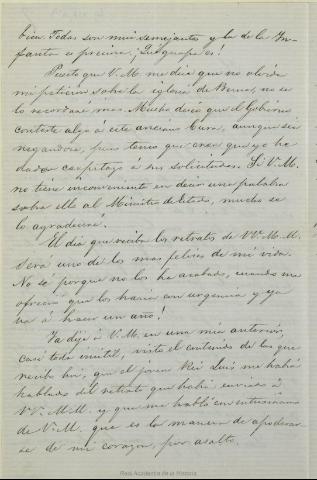 bien. Todas son muy semejantes y la de la In-
fanta es preciosa; ¡Qué guapa es!
Puesto que V. M. me dice que no olvida
mi petición sobre la iglesia de no se
lo recordaré más. Mucho deseo que el Gobierno
conteste algo á este anciano Cura, aunque sea
negandose, pues temo que crea que yo he
dado carpetazo á sus solicitudes. Si V. M.
no tiene inconveniente en decir una palabra
sobre ello al Ministro de Estado, mucho se
lo agradeceré.
El dia que reciba los retratos de VV. M. M.
será uno de los mas felices de mi vida.
No sé porque no los ha acabado, cuando me
ofreció que los haria con urgencia y ya
va á hacer un año!
Ya dije á V. M. en una mia anterior,
casi toda inutil, vista el contenido de las que
recibo hoy, que el joven Rei Luis me habia
hablado del retrato que habia enviado á
VV. M. M. y que me habló con entusiasmo
de V. M. que es la manera de apoderar-
se de mi corazon, por asalto.
Real Academia de la Historia